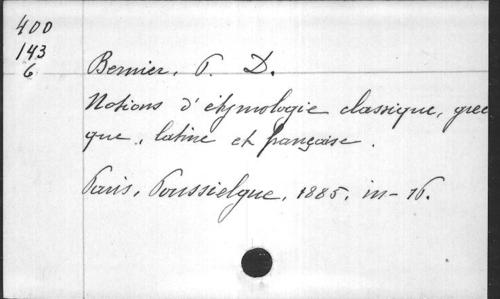 400
143
6
Bernier, P. D.
Notions d'étymologie classique, grec
que, latine et française.
Paris, Poussielgue, 1885, in-16.